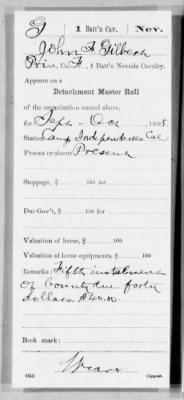 G | 1 Batt'n Cav. | Nev.
John F Gilbert
Priv., Co. F, 1 Batt'n Nevada Cavalry.
Appears on a
Detachment Muster Roll
of the organization named above,
for Sept - Oct, 1865.
Station Camp Independence Cal
Present or absent Present
Stoppage, $ 100 for
Due Gov't, $ 100 for
Valuation of horse, $ 100
Valuation of horse equipments, $ 100
Remarks: Fifth instalment
of bounty due forty
dollars $40.00
Book mark:
(340) Copyist.